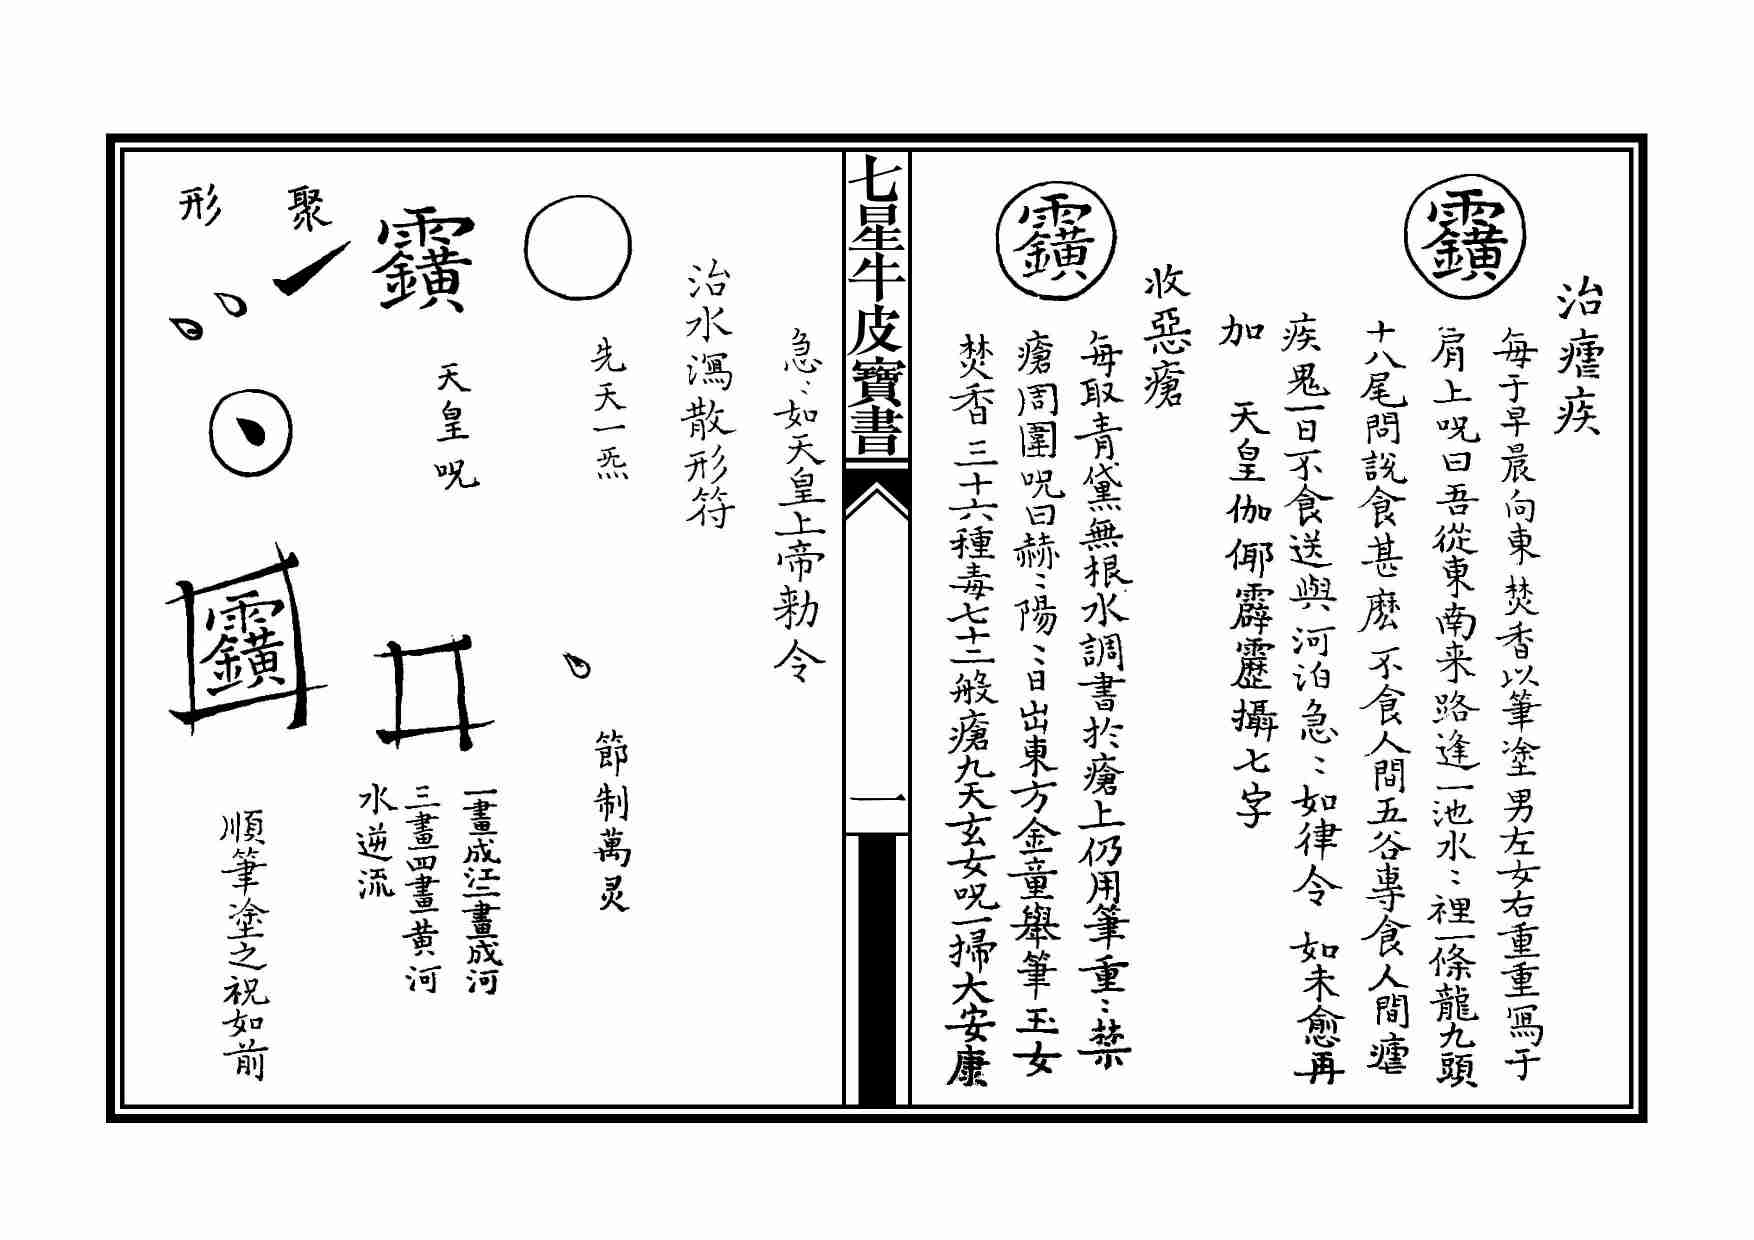 治瘧疾
每于早晨向東焚香以筆塗男左女右重重寫于
肩上呪曰吾從東南来路逢一池水〻裡一條龍九頭
十八尾問説食甚麽不食人間五谷專食人間瘧
疾鬼一日不食送與河泊急〻如律令 如未愈再
加 天皇伽倻霹靂攝七字
收惡瘡
每取青黛無根水調書於瘡上仍用筆重〻禁
瘡周圍呪曰赫〻陽〻日出東方金童舉筆玉女
焚香三十六種毒七十二般瘡九天玄女呪一掃大安康
七星牛皮寶書
一
急〻如天皇上帝勅令
治水瀉散形符
先天一炁
節制萬灵
天皇呪
一畫成江二畫成河
三畫四畫黄河
水逆流
聚
形
順筆塗之祝如前